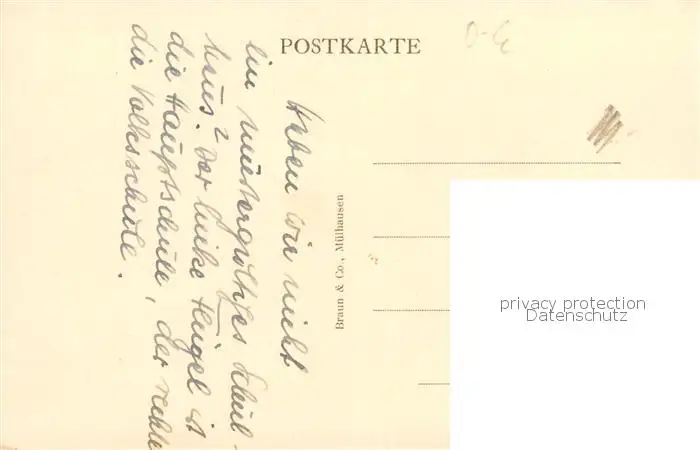 POSTKARTE
Haben wir nicht
ein mustergültiges Schul-
haus? Der linke Flügel ist
die Hauptschule, der rechte
die Volksschule.
Braun & Co., Mülhausen
privacy protection
Datenschutz